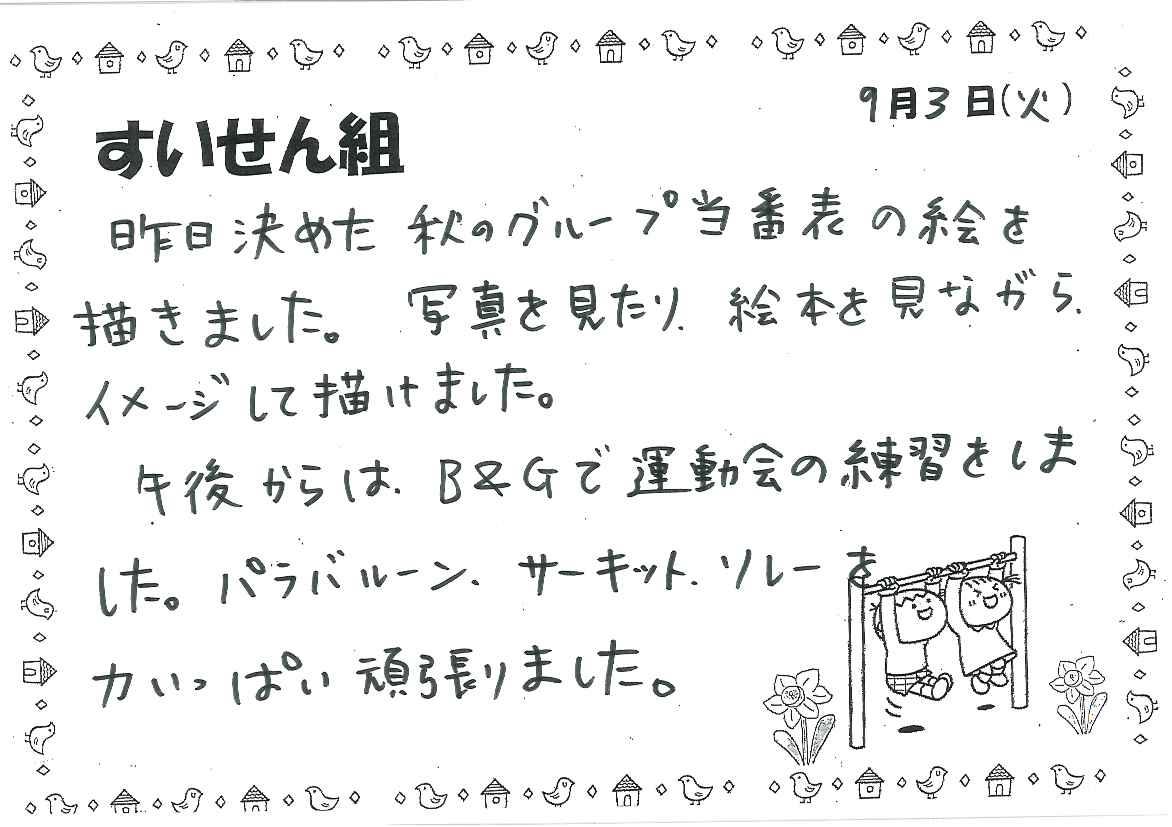 9月3日(火)
すいせん組
昨日決めた秋のグループ当番表の絵を
描きました。写真を見たり、絵本を見ながら、
イメージして描けました。
午後からは、B&Gで運動会の練習をしま
した。パラバルーン、サーキット、リレーを
力いっぱい頑張りました。